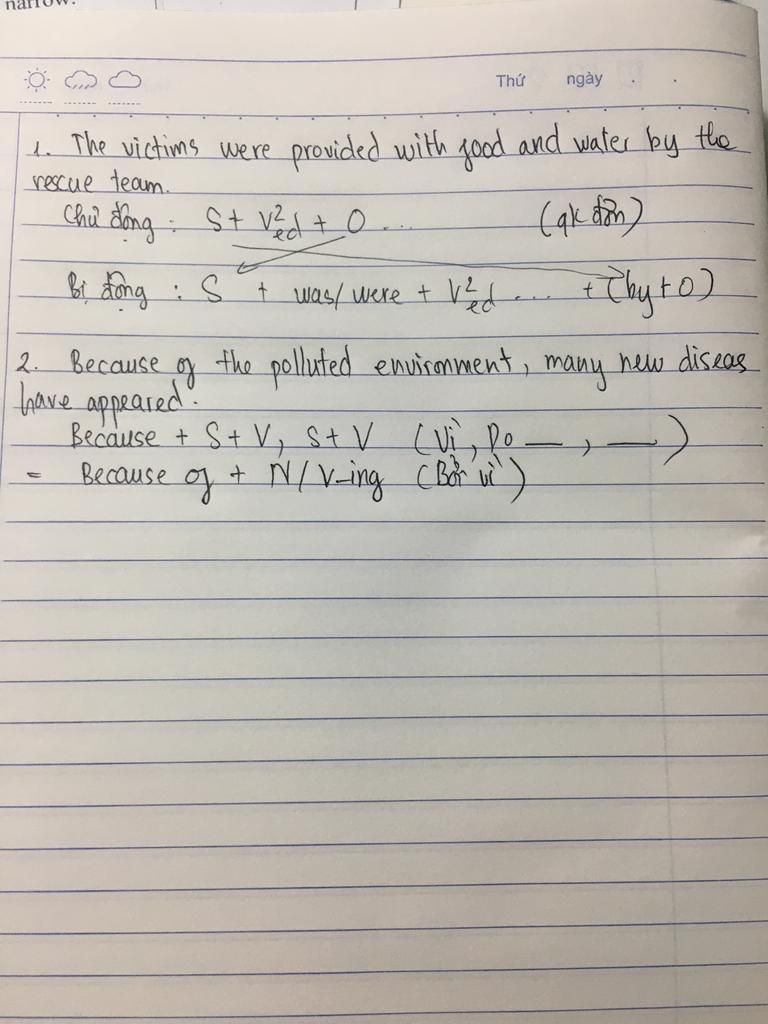 narrow.
Thứ ngày . .
1. The victims were provided with food and water by the
rescue team.
Chủ động : S + V2 ed + O ... (qk đơn)
Bị động : S + was/ were + V2 ed ... + (by + O)
2. Because of the polluted environment, many new diseas
have appeared.
Because + S + V, S + V (Vì, Do — , — )
= Because of + N / V-ing (Bởi vì)